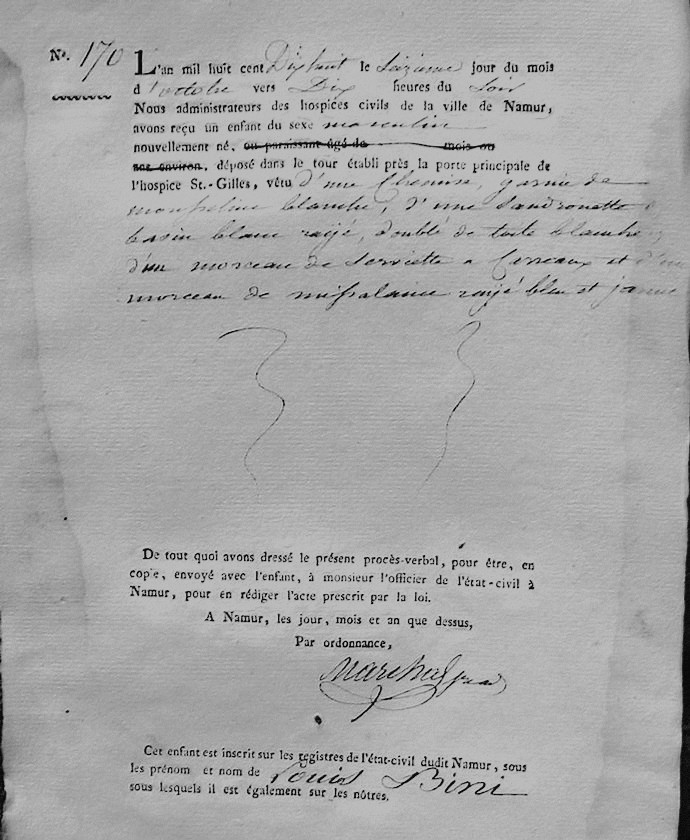 No. 170
L'an mil huit cent Dixhuit le Seizieme jour du mois
d'octobre vers Dix heures du Soir
Nous administrateurs des hospices civils de la ville de Namur,
avons reçu un enfant du sexe masculin
nouvellement né, ou paraissant âgé de mois ou
ans environ, déposé dans le tour établi près la porte principale de
l'hospice St.-Gilles, vêtu d'une Chemise, garnie de
mousseline blanche, d'une
basin blanc rayé, doublé de toile blanche
d'un morceau de Serviette a Carreaux et d'un
morceau de rayé bleu et jaune
De tout quoi avons dressé le présent procès-verbal, pour être, en
copie, envoyé avec l'enfant, à monsieur l'officier de l'état-civil à
Namur, pour en rédiger l'acte prescrit par la loi.
A Namur, les jour, mois et an que dessus,
Par ordonnance,
Marchal
Cet enfant est inscrit sur les registres de l'état-civil dudit Namur, sous
les prénom et nom de Louis Bini
sous lesquels il est également sur les nôtres.